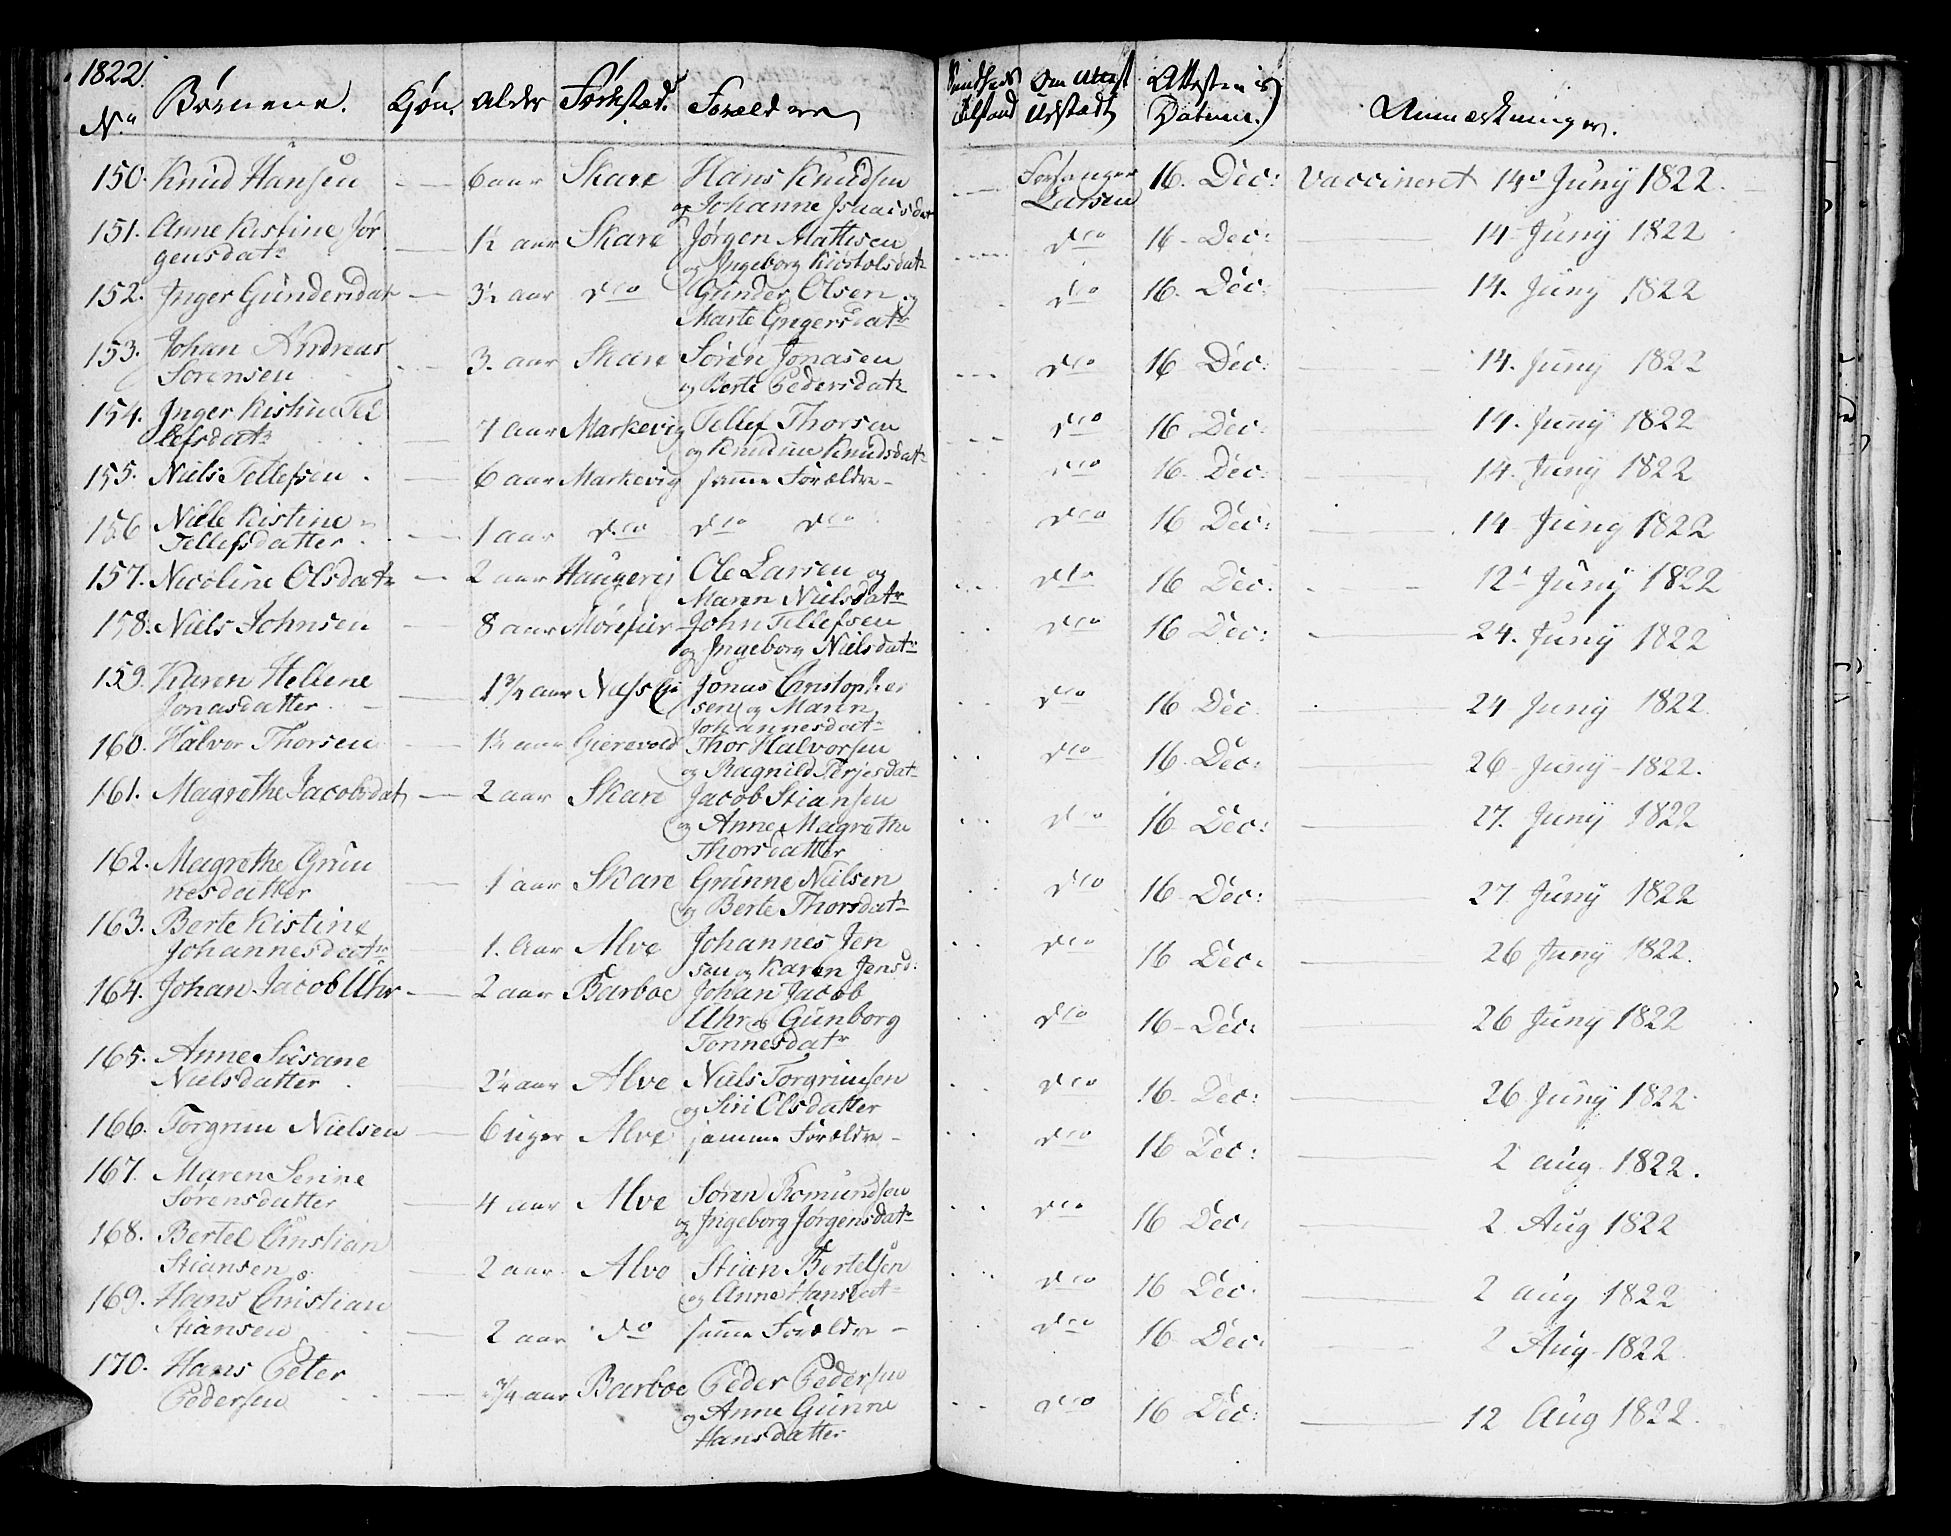 1822.
No. Børnene. Kjøn. Alder Fødested. Forældre Sundheds Tilstand Om Attest Udstædt Attestens Datum. Anmærkninger.
150. Knud Hansen — 6 aar Skare Hans Knudsen — Forsanger 16. Dec: Vaccineret 14. Juny 1822.
og Johanne Isaacsdat Larsen
151. Anne Kistine Jør — 1½ aar Skare Jørgen Mattisen — dto 16- Dec: — 14- Juny 1822
gensdatr og Ingeborg Kiostolsdatr
152. Inger Gundersdat — 3½ aar dto Gunder Olsen og dto 16. Dec: 14. Juny 1822
Marte Gregersdatr
153. Johan Andreas — 3. aar Skare Søren Jonasen — dto 16 Dec: — 14. Juny 1822
Sørensen og Berte Pedersdatr
154. Inger Kistine Tel — 7 aar Markevig Tellef Thorsen — dto 16 Dec: 14. Juny 1822
lefsdatr og Knudine Knudsdatr
155. Niels Tellefsen — 6 aar Markevig samme Forældre - dto 16- Dec: — 14. Juny 1822
156 Nille Kistine — 1 aar dto dto dto dto 16 Dec: — 14 Juny 1822
Tellefsdatter
157. Nicoline Olsdatr — 2 aar Ole Larsen og dto 16 Dec: — 12 Juny 1822
Maren Nielsdatr
158. Niels Johnsen — 8 aar John Tellefsen dto 16 Dec: — 24. Juny 1822
og Ingeborg Nielsdatr
159. Karen Hellene — 1¾ aar Jonas Christopher dto 16 Dec — 24 Juny 1822
Jonasdatter sen og Maren
Johannesdatr
160. Halvor Thorsen — 1½ aar Gierevold Thor Halvorsen dto 16 Dec: — 26- Juny- 1822.
og Ragnild Terjesdatr
161. Magrethe Jacobsdat — 2 aar Skare Jacob Stiansen dto 16 Dec: — 27. Juny 1822
og Anne Magrethe
Thorsdatter
162. Magrethe Grun — 1 aar Skare Grunne Nielsen dto 16- Dec: — 27. Juny 1822
nesdatter og Berte Thorsdatr
163. Berte Kistine — 1. Aar Alve Johannes Jen dto 16 Dec: — 26 Juny 1822.
Johannesdatr sen og Karen Jensd:
164. Johan Jacob Uhr — 2 aar Barboe Johan Jacob dto 16- Dec: — 26 Juny 1822
Uhr og Gunborg
Tonnesdatr
165. Anne Susane — 2½ aar Alve Niels Torgrimsen dto 16- Dec: — 26 Juny 1822
Nielsdatter og Siri Olsdatter
166. Torgrim Nielsen — 6 uger Alve samme Forældre - dto 16 Dec: — 2 aug 1822.
167. Maren Serine — 4 aar Alve Søren Romundsen dto 16 Dec: — 2 Aug 1822
Sørensdatter og Ingeborg Jørgensdatr
168. Bertel Christian — 2 aar Alve Stian Bertelsen dto 16 Dec: — 2 aug 1822
Stiansen og Anne Hansdatr
169. Hans Christian — 2 aar do samme Forældre - dto 16- Dec: — 2 Aug 1822
Stiansen
170. Hans Peter — ¾ aar Barboe Peder Pedersen dto 16 Dec: — 12 Aug 1822.
Pedersen og Anne Gunne
Hansdatter